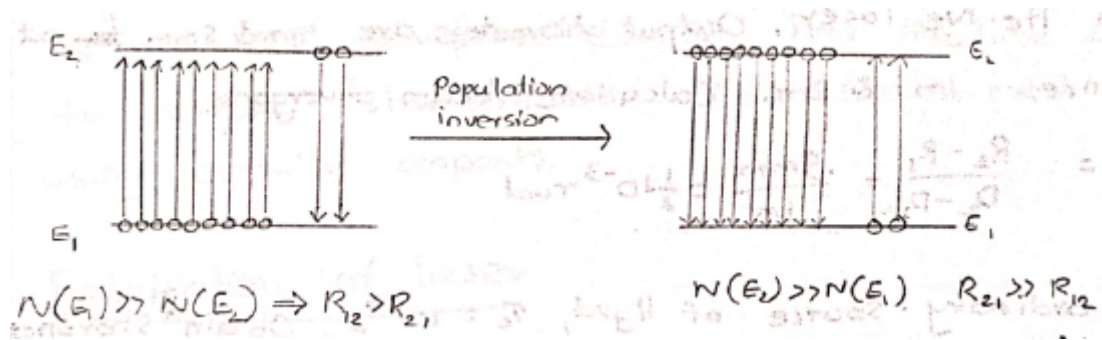 E₂
E₁
Population
inversion
E₂
E₁
N(E₁) >> N(E₂) ⇒ R₁₂ > R₂₁
N(E₂) >> N(E₁) R₂₁ >> R₁₂